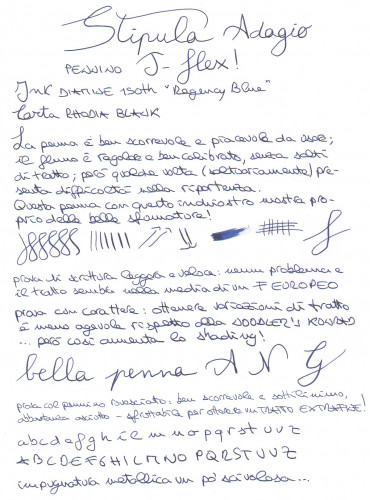 Stipula Adagio
PENNINO T-flex!
INK DIAMINE 150th "Regency Blue"
Carta RHODIA BLANK
La penna è ben scorrevole e piacevole da usare;
il flusso è regolare e ben calibrato, senza salti
di tratto; però qualche volta (saltuariamente) pre-
senta difficoltà nella ripartenza.
Questa penna con questo inchiostro mostra pro-
prio delle belle sfumature!
prova di scrittura leggera e veloce: nessun problema e
il tratto sembra nella media di un F EUROPEO
prova con carattere: ottenere variazioni di tratto
è meno agevole rispetto alla DOODLER'S KONRAD
... però così aumenta lo shading!
bella penna A N G
prova col pennino rovesciato: ben scorrevole e sottilissimo,
abbastanza asciutto - sfruttabile per ottenere un TRATTO EXTRAFINE!
a b c d e f g h i l m n o p q r s t u v z
A B C D E F G H I L M N O P Q R S T U V Z
impugnatura metallica un po' scivolosa...